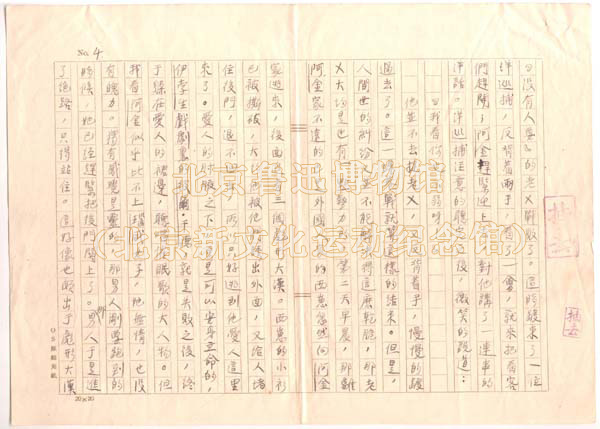 No. 4
“沒有人要”的老X鬥敗了。這時候來了一位
洋巡捕,反背着兩手,看了一會,就來把看客
們趕開;阿金趕緊迎上去,對他講了一連串的
洋話。洋巡捕注意的聽完之後,微笑的說道:
“我看你也不弱呀
他並不去捉老X,又反背着手,慢慢的踱
過去了。這一場巷戰就算這樣的結束。但是,
人間世的糾紛又並不能解決得這麽乾脆,那老
X大約是也有一點勢力的。第二天早晨,那離
阿金家不遠的也是外國人家的西崽忽然向阿金
家逃來,後面追着三個彪形大漢。西崽的小衫
已被撕破,大約他被他們誘出外面,又給人堵
住後門,退不回去,所以只好逃到他愛人這里
來了。愛人的肘腋之下,原是可以安身立命的,
伊孛生戲劇里的彼爾·干德,就是失敗之後,終
于躲在愛人的裙邊,聽唱催眠歌的大人物。但
我看阿金似乎比不上瑙威女子,她無情,也沒
有魄力。獨有感覺是靈的,那男人剛要跑到的
時候,她已經趕緊把後門關上了。那男人于是進
了絕路,只得站住。這好像也頗出于彪形大漢
抽去
抽去
20×20
北京鲁迅博物馆
(北京新文化运动纪念馆)